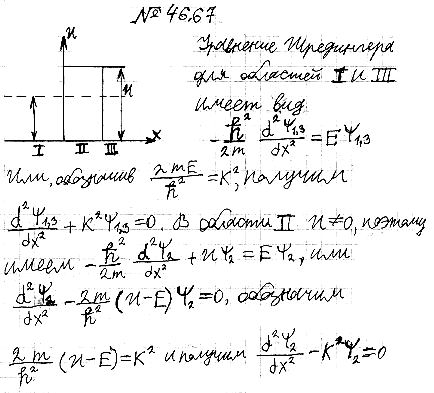 № 46.67
Уравнение Шредингера
для областей I и III
имеет вид
-ħ²/2m d²Ψ₁,₃/dx² = EΨ₁,₃
и
u
I II III x
Или, обозначив 2mE/ħ² = K², получим
d²Ψ₁,₃/dx² + K²Ψ₁,₃ = 0. В области II u≠0, поэтому
имеем -ħ²/2m d²Ψ₂/dx² + uΨ₂ = EΨ₂, или
d²Ψ₂/dx² - 2m/ħ² (u-E) Ψ₂ = 0, обозначим
2m/ħ² (u-E) = K² и получим d²Ψ₂/dx² - K²Ψ₂ = 0